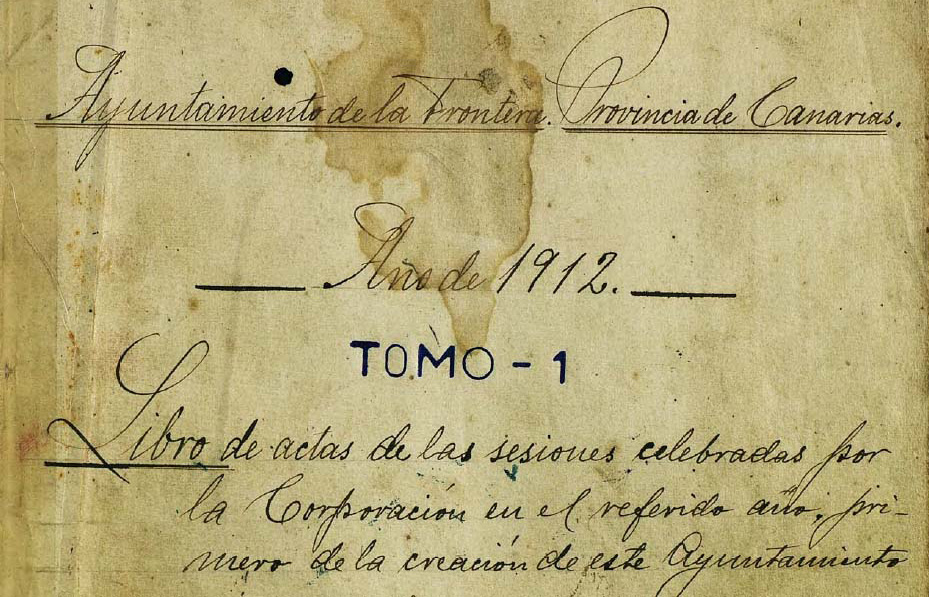 Ayuntamiento de la Frontera. Provincia de Canarias.
Año de 1912.
TOMO - 1
Libro de actas de las sesiones celebradas por
la Corporación en el referido año, pri-
mero de la creación de este Ayuntamiento